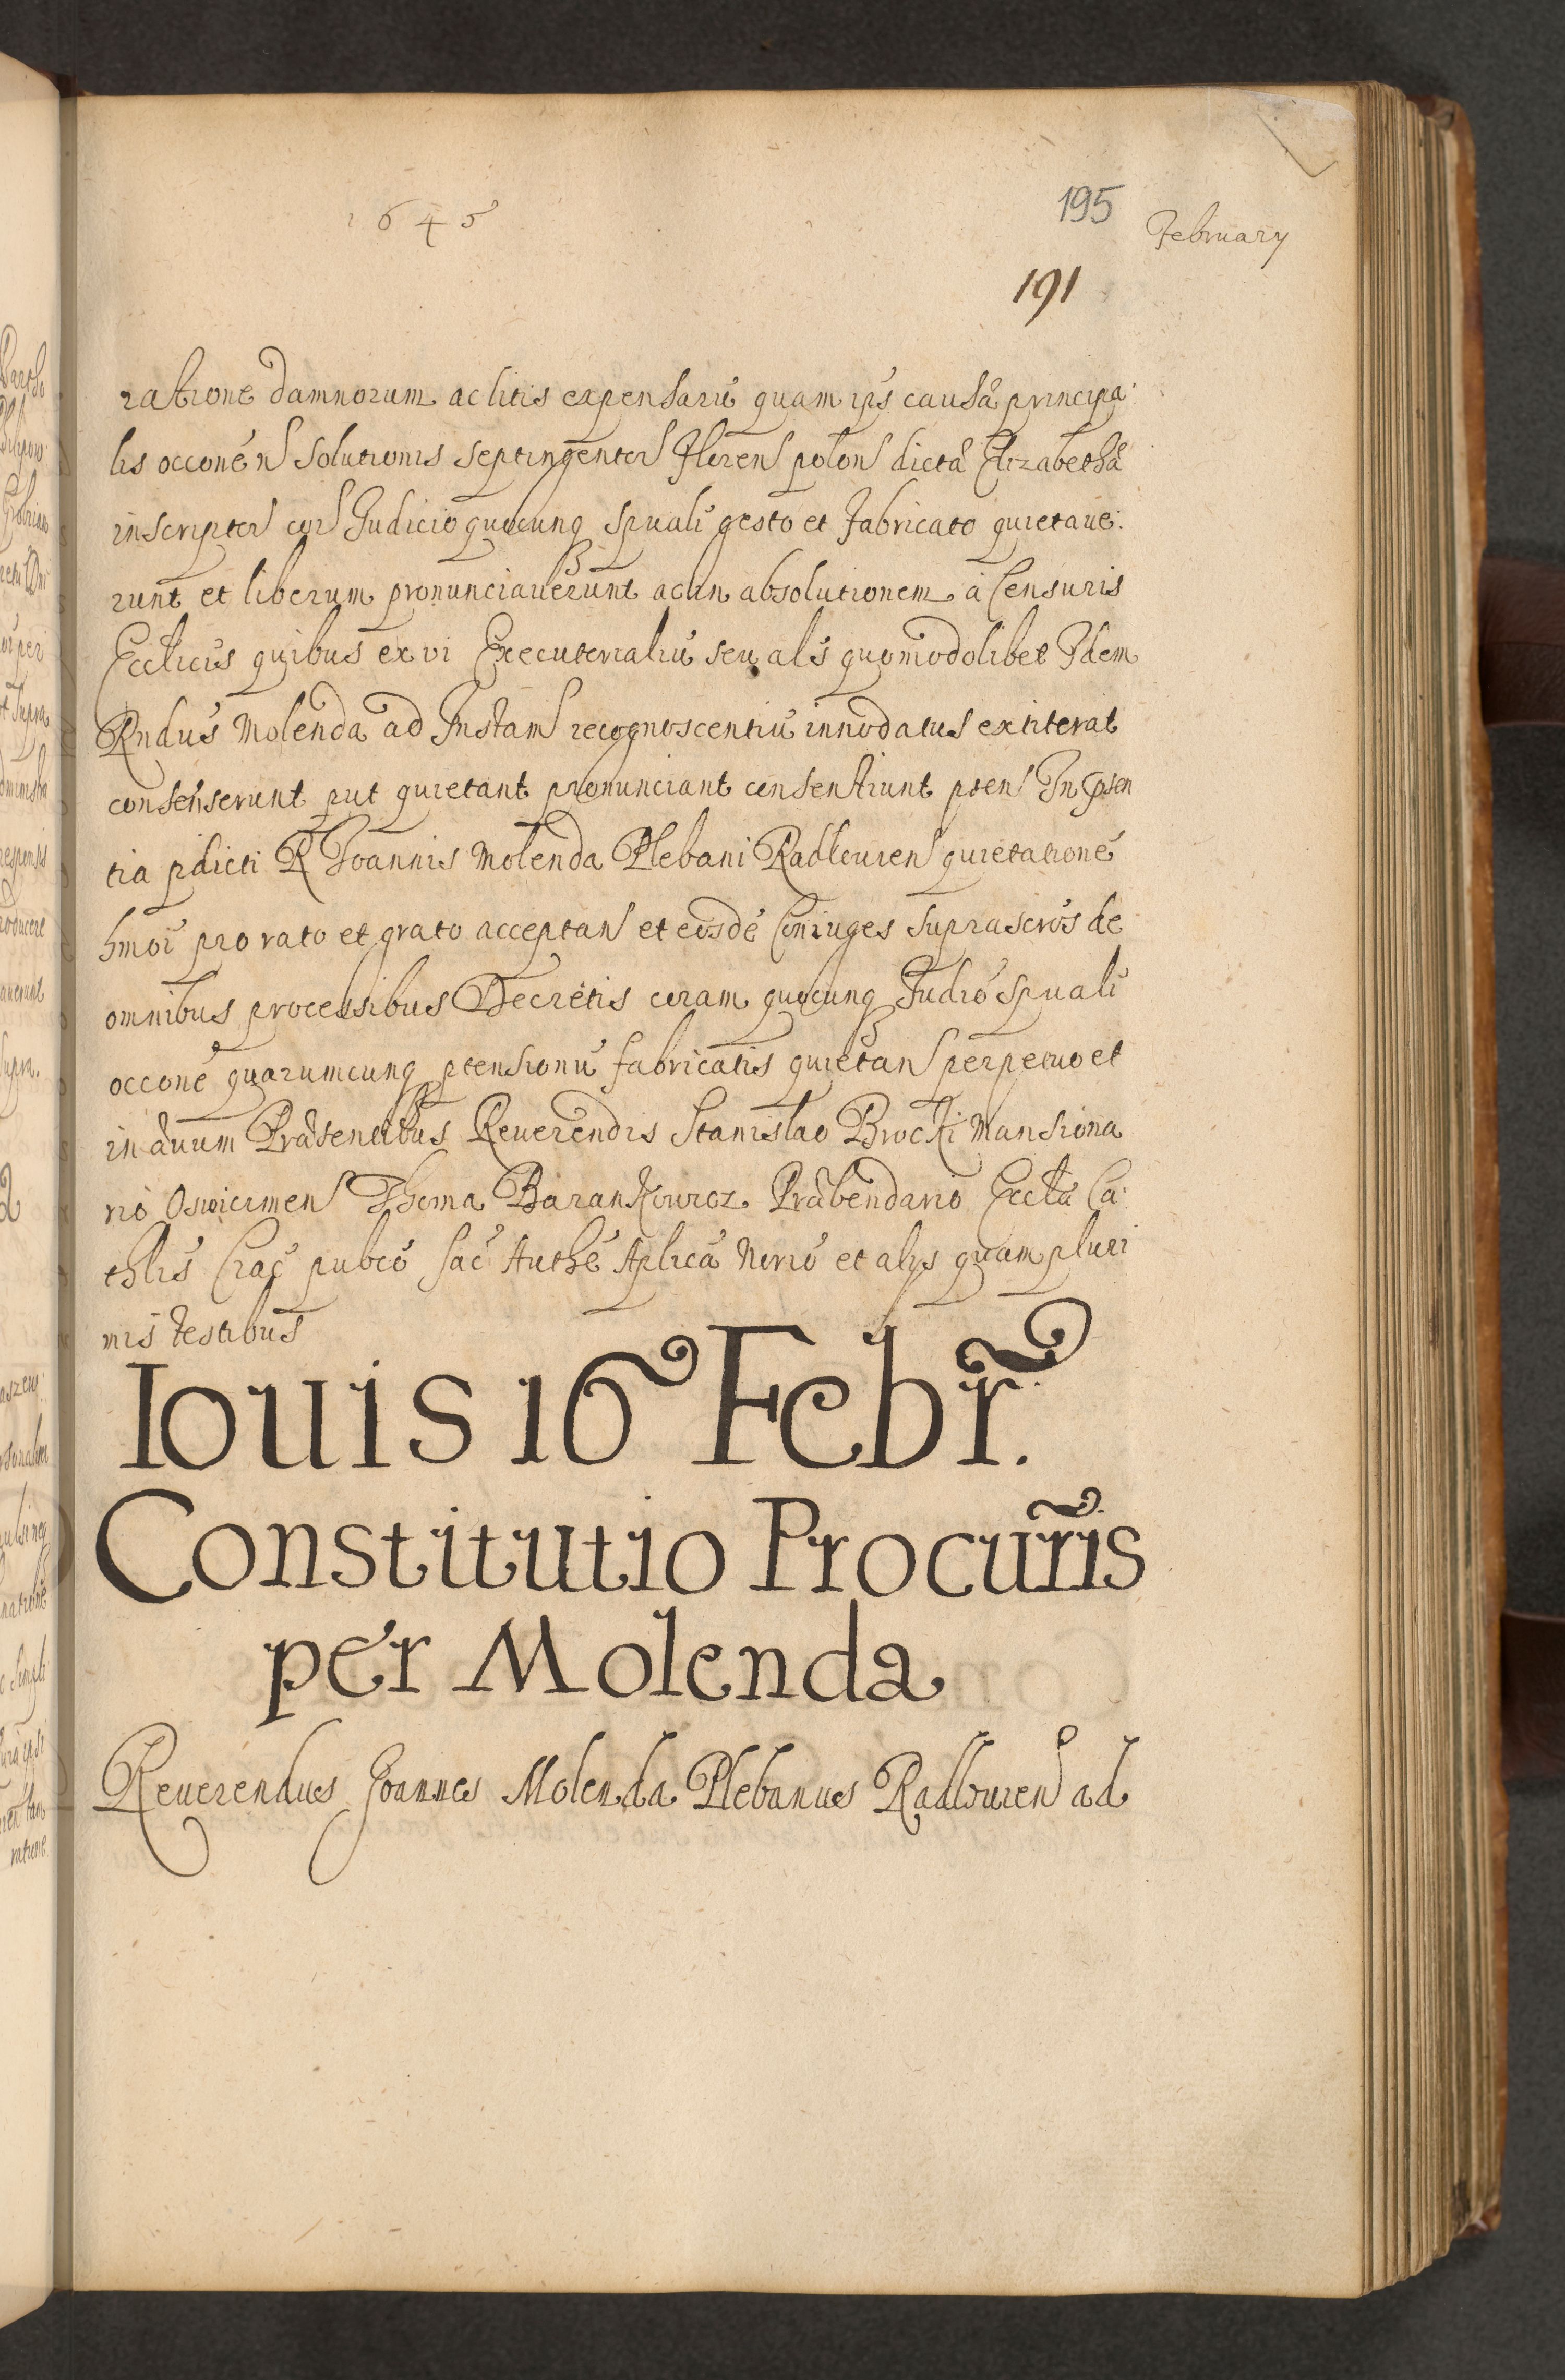 1645
195
February
191
ratione damnorum ac litis expensarũ quam ip̃s causã principa:
lis occõnẽ n solutionis septingentor floren polon dictã Elizabethã
inscriptor cor Judicio quocunq spuali gesto et fabricato quietaue:
runt et liberum pronunciauerunt ac in absolutionem à Censuris
Eccłicis quibus ex vi Executorialiũ seu als quomodolibet Idem
Rndus Molenda ad Instan recognoscentiũ innodatus extiterat
consenserunt put quietant pronunciant consentiunt pten In psen
tia pdicti R Joannis Molenda Plebani Radlouien quietationẽ
hmoi pro rato et grato acceptan et eosdẽ Coniuges suprascros de
omnibus processibus Decretis coram quocunq Judiõ spuali
occõne quarumcunq ptensionũ fabricatis quietan perpetuo et
in æuum Præsentibus Reuerendis Stanislao Brocki Mansiona
rio Oswiecimen Thoma Barankowicz Præbendario Eccłæ Ca:
thlis Crac pubco Sac Authe Aplica Norio et alys quam pluri
mis testibus
Iouis 16 Febr̃.
Constitutio Procur̃is
per Molenda
Reuerendus Joannes Molenda Plebanus Radlouien ad